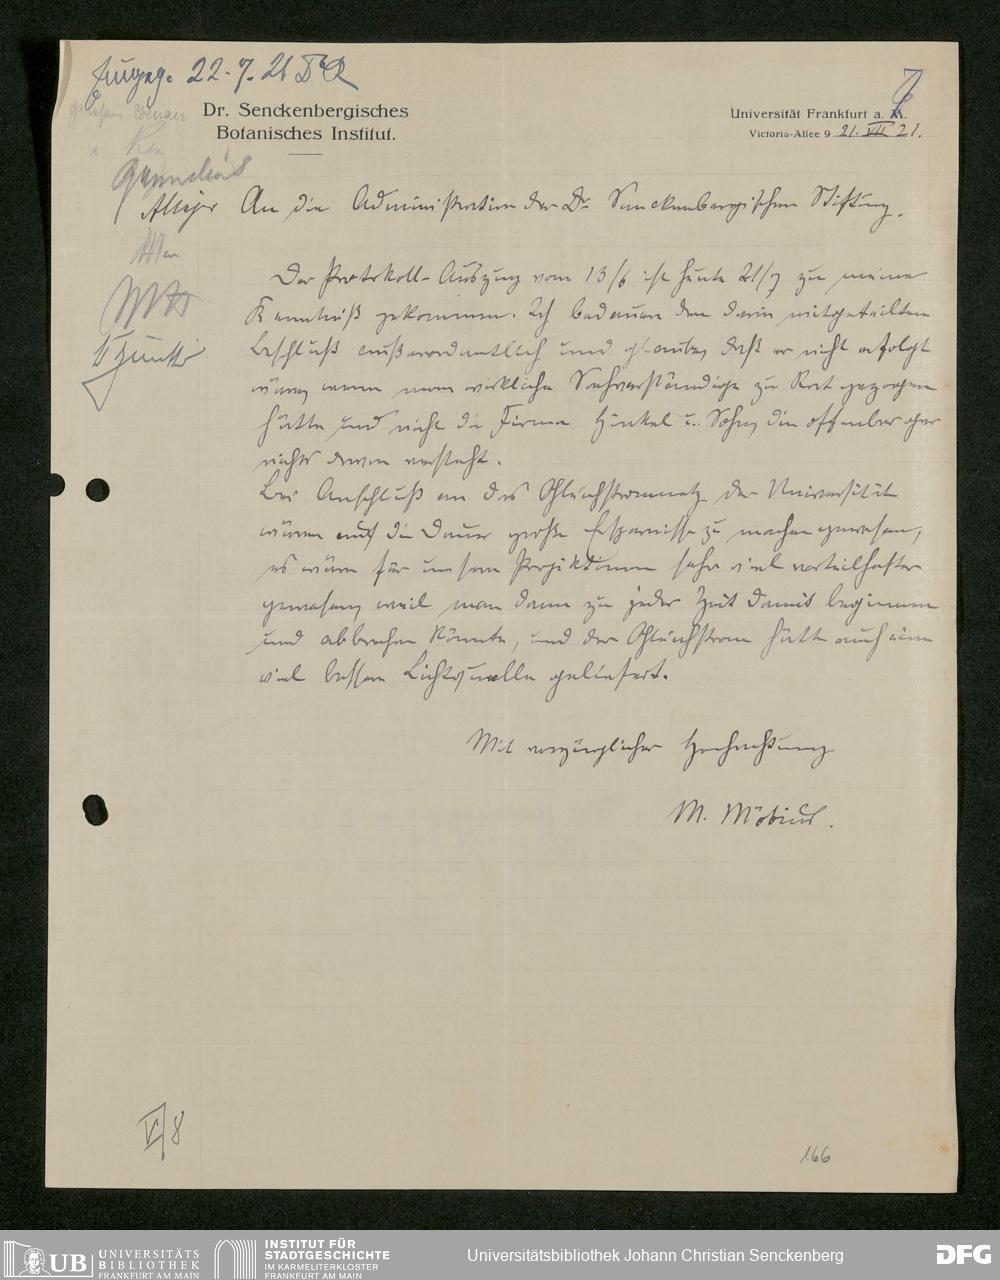 Eingeg. 22.7.21
7
gelesen
Dr. Senckenbergisches
Botanisches Institut.
Universität Frankfurt a. M.
Victoria-Allee 9 21. VII 21.
An die Administration der Dr. Senckenbergischen Stiftung.
Der Protokoll-Auszug vom 13/6 ist heute 21/7 zu meiner
Kenntniß gekommen. Ich bedauere den darin mitgeteilten
Beschluß außerordentlich und glaube, daß er nicht erfolgt
wäre, wenn man wirkliche Sachverständige zu Rat gezogen
hätte und nicht die Firma Hinkel u. Sohn, die offenbar gar
nichts davon versteht.
Bei Anschluß an das Gleichstromnetz der Universität
wären auf die Dauer große Ersparnisse zu machen gewesen,
es wäre für unsere Projektionen sehr viel vorteilhafter
gewesen, weil man dann zu jeder Zeit damit beginnen
und abbrechen könnte, und der Gleichstrom hätte auch eine
viel bessere Lichtquelle geliefert.
Mit vorzüglicher Hochachtung
M. Möbius.
V/8
166
UB UNIVERSITÄTS
BIBLIOTHEK
FRANKFURT AM MAIN
INSTITUT FÜR
STADTGESCHICHTE
IM KARMELITERKLOSTER
FRANKFURT AM MAIN
Universitätsbibliothek Johann Christian Senckenberg
DFG